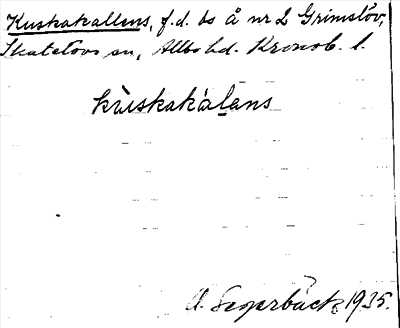 Kuskakallens, f.d. bs å nr 2 Grimslöv,
Skatelövs sn, Allbo hd. Kronob. l.
kuskakálans
A. Segerbäck 1935.